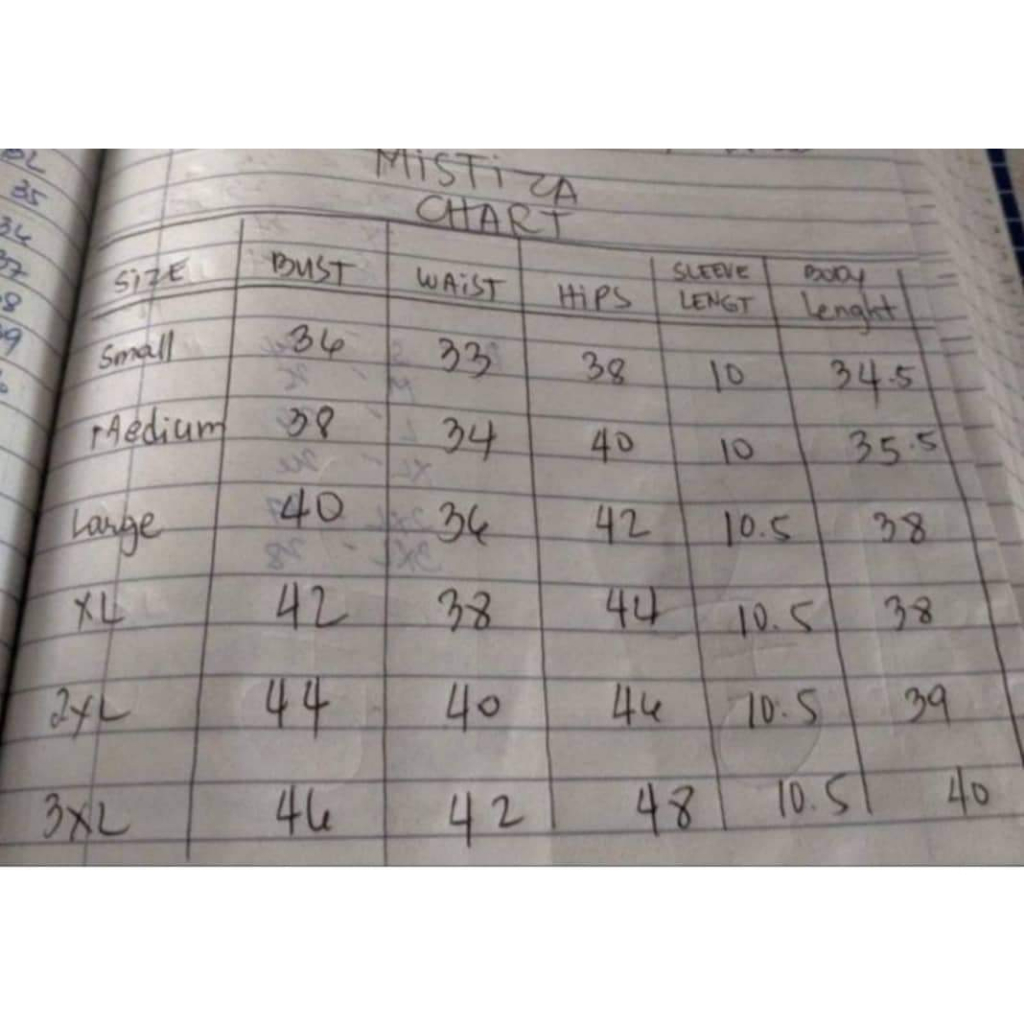 MiSTiZA
CHART
SiZE BUST WAiST HiPS SLEEVE LENGT BODY Lenght
Small 36 33 38 10 34.5
Medium 38 34 40 10 35.5
Large 40 36 42 10.5 38
XL 42 38 44 10.5 38
2XL 44 40 46 10.5 39
3XL 46 42 48 10.5 40
35
34
37